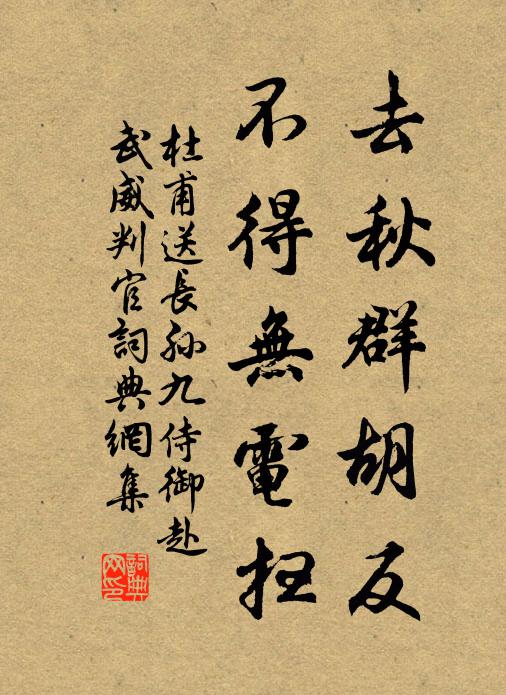 去秋群胡反
不得無電扫
杜甫送長孫九侍御赴
武威判官詞典網集
詞典
网印